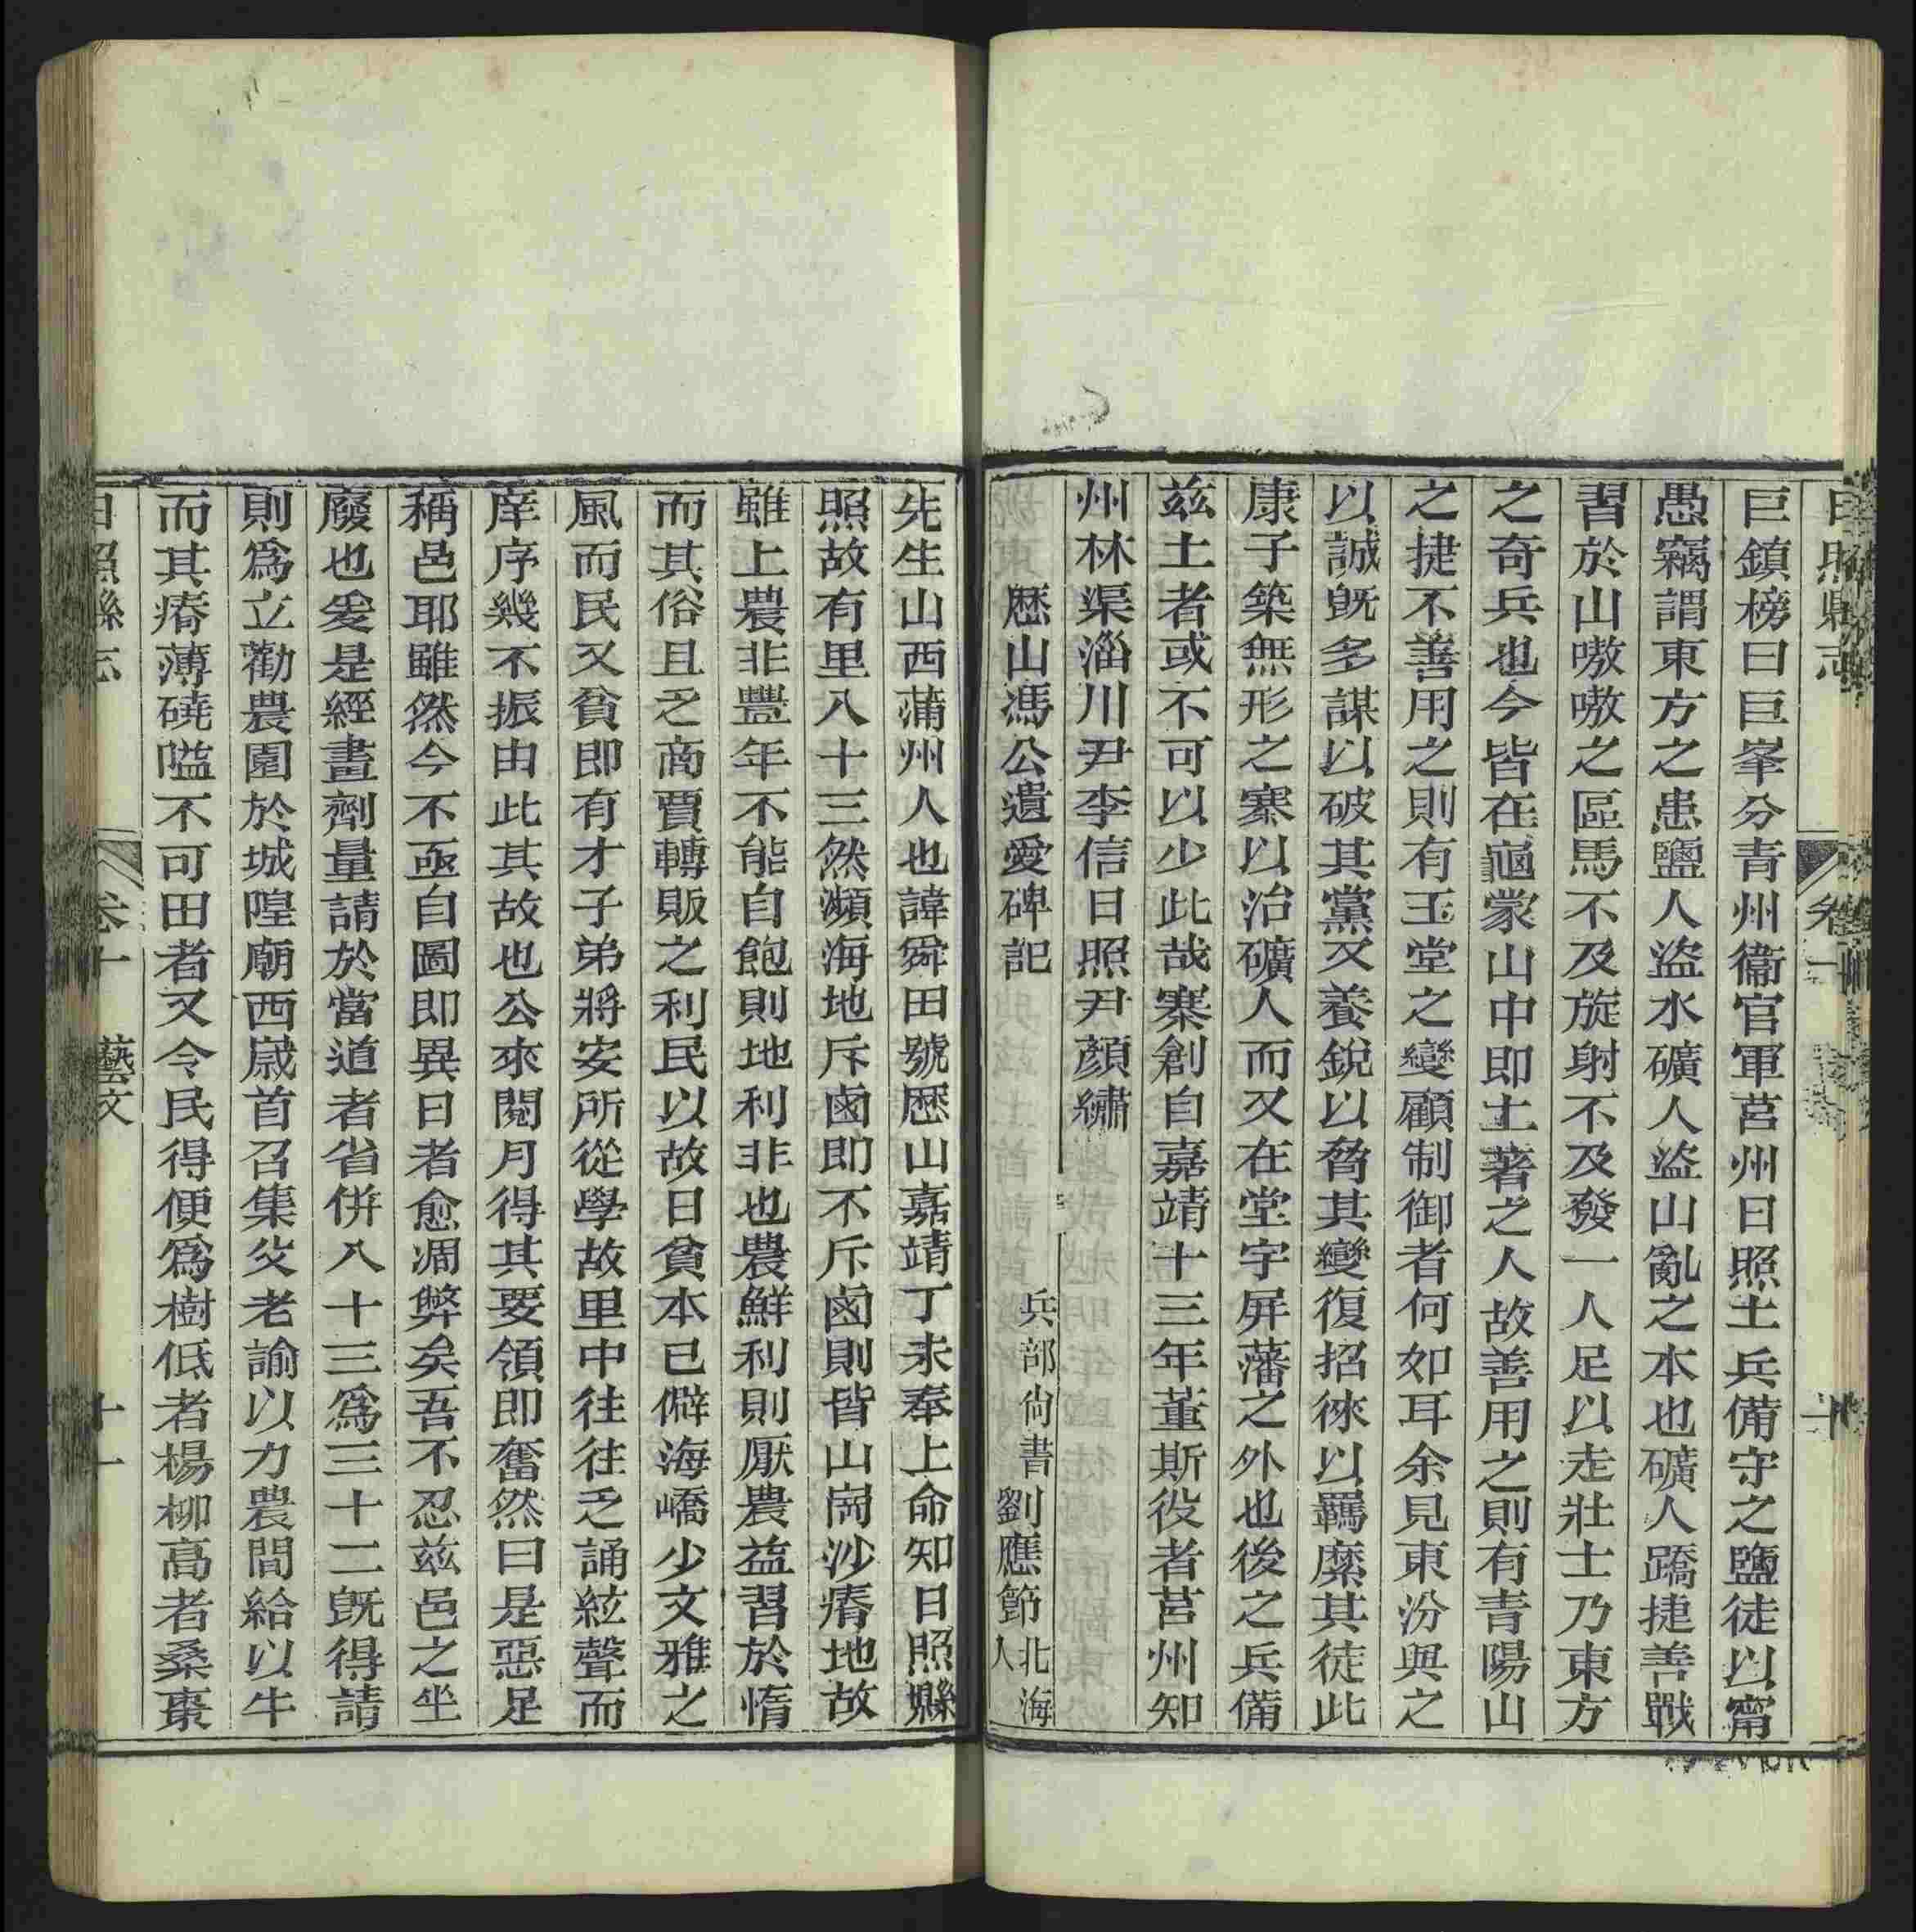 日照縣志
卷十
十
巨鎮榜曰巨峯分青州衞官軍莒州日照土兵備守之鹽徒以甯
愚竊謂東方之患鹽人盜水礦人盜山亂之本也礦人蹻捷善戰
習於山嗷嗷之區馬不及旋射不及發一人足以走壯士乃東方
之奇兵也今皆在龜蒙山中即土著之人故善用之則有青陽山
之捷不善用之則有玉堂之變顧制御者何如耳余見東汾與之
以誠旣多謀以破其黨又養銳以脅其變復招徠以羈縻其徒此
康子築無形之寨以治礦人而又在堂宇屏藩之外也後之兵備
茲土者或不可以少此哉寨創自嘉靖十三年董斯役者莒州知
州林渠淄川尹李信日照尹顏繡
歷山馮公遺愛碑記 兵部尙書劉應節北海人
先生山西蒲州人也諱舜田號歷山嘉靖丁未奉上命知日照縣
照故有里八十三然瀕海地斥鹵即不斥鹵則皆山崗沙瘠地故
雖上農非豐年不能自飽則地利非也農鮮利則厭農益習於惰
而其俗且乏商賈轉販之利民以故日貧本已僻海嶠少文雅之
風而民又貧即有才子弟將安所從學故里中往往乏誦絃聲而
庠序幾不振由此其故也公來閱月得其要領即奮然曰是惡足
稱邑耶雖然今不亟自圖即異日者愈凋弊矣吾不忍茲邑之坐
廢也爰是經畫劑量請於當道者省併八十三爲三十二旣得請
則爲立勸農圃於城隍廟西歲首召集父老諭以力農間給以牛
而其瘠薄磽嗌不可田者又令民得便爲樹低者楊柳高者桑棗
日照縣志
卷十 藝文
十一